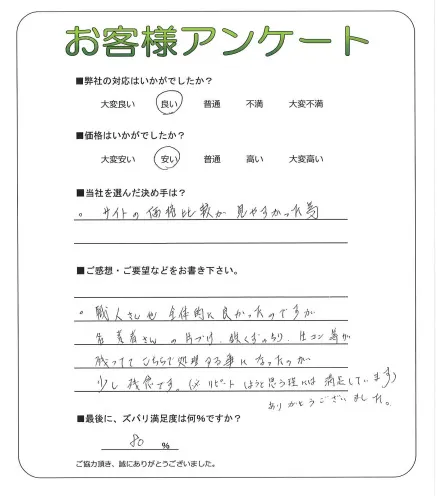 お客様アンケート
■弊社の対応はいかがでしたか？
大変良い 良い 普通 不満 大変不満
■価格はいかがでしたか？
大変安い 安い 普通 高い 大変高い
■当社を選んだ決め手は？
。サイトの価格比較が見やすかった為
■ご感想・ご要望などをお書き下さい。
。職人さんも全体的に良かったのですが
業者さんの片づけ、鉄くず
残っててこちらで処理する事になったのが
少し残念です。(※リピートしようと思う程には満足しています)
ありがとうございました。
■最後に、ズバリ満足度は何%ですか？
80 %
ご協力頂き、誠にありがとうございました。